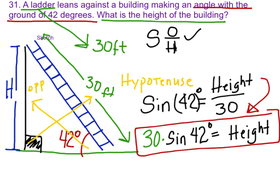 31. A ladder leans against a building making an angle with the
ground of 42 degrees. What is the height of the building?
30ft
S O/H ✓
H
OPP
30ft
Hypotenuse
42°
Sin(42°) = Height/30
30·Sin 42° = Height